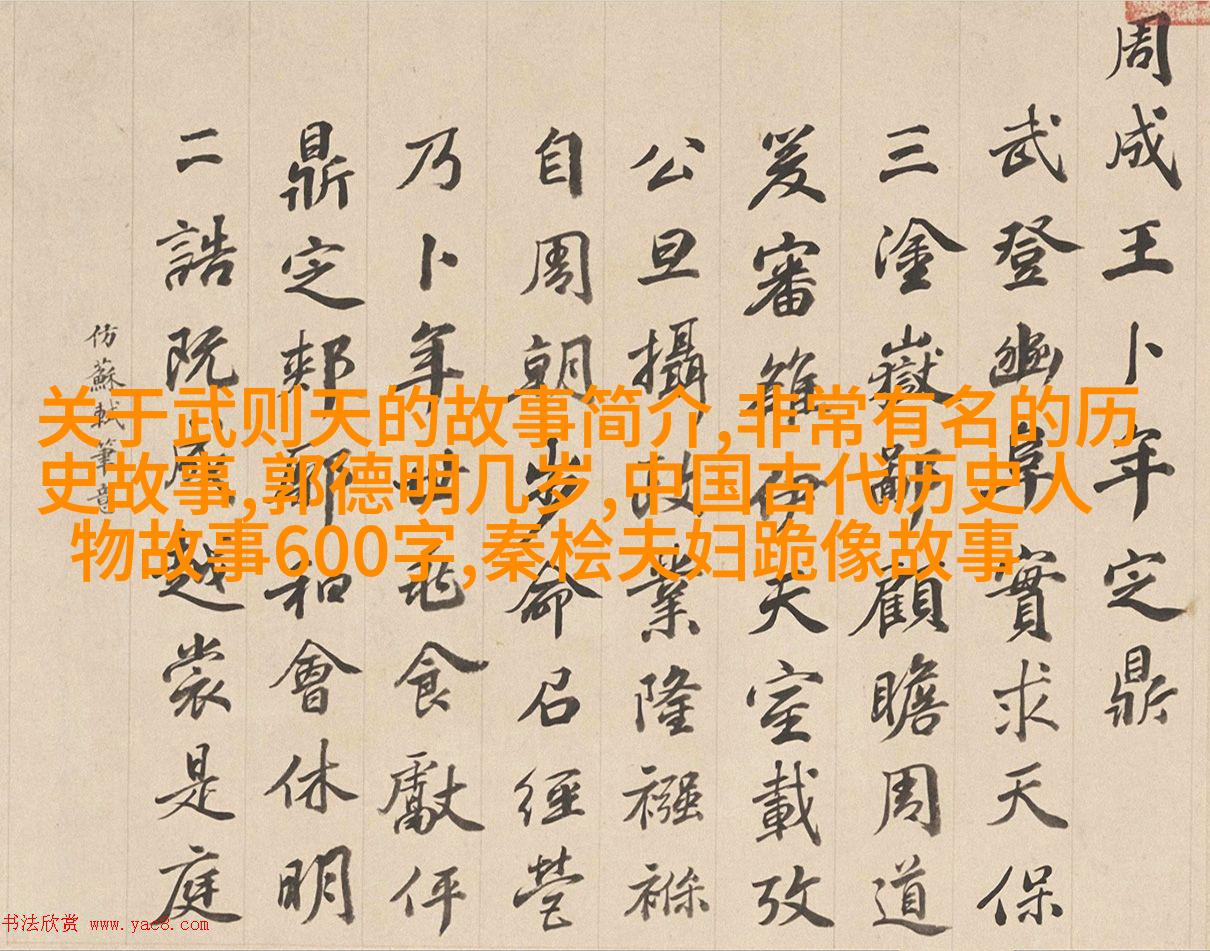 周成王卜年定鼎
武登豳阜實求天保
三塗嶽鄙顧瞻周道
爰審雒伊天室載攷
公旦攝政業隆襁褓
自周朝步命召經營
乃卜年世兆食獻伻
鼎定郟鄏和會休明
二誥既越裳是庭
仿蘇軾筆意
关于武则天的故事简介,非常有名的历
史故事,郭德明几岁,中国古代历史人
物故事600字,秦桧夫妇跪像故事
书法欣赏 www.yac8.com